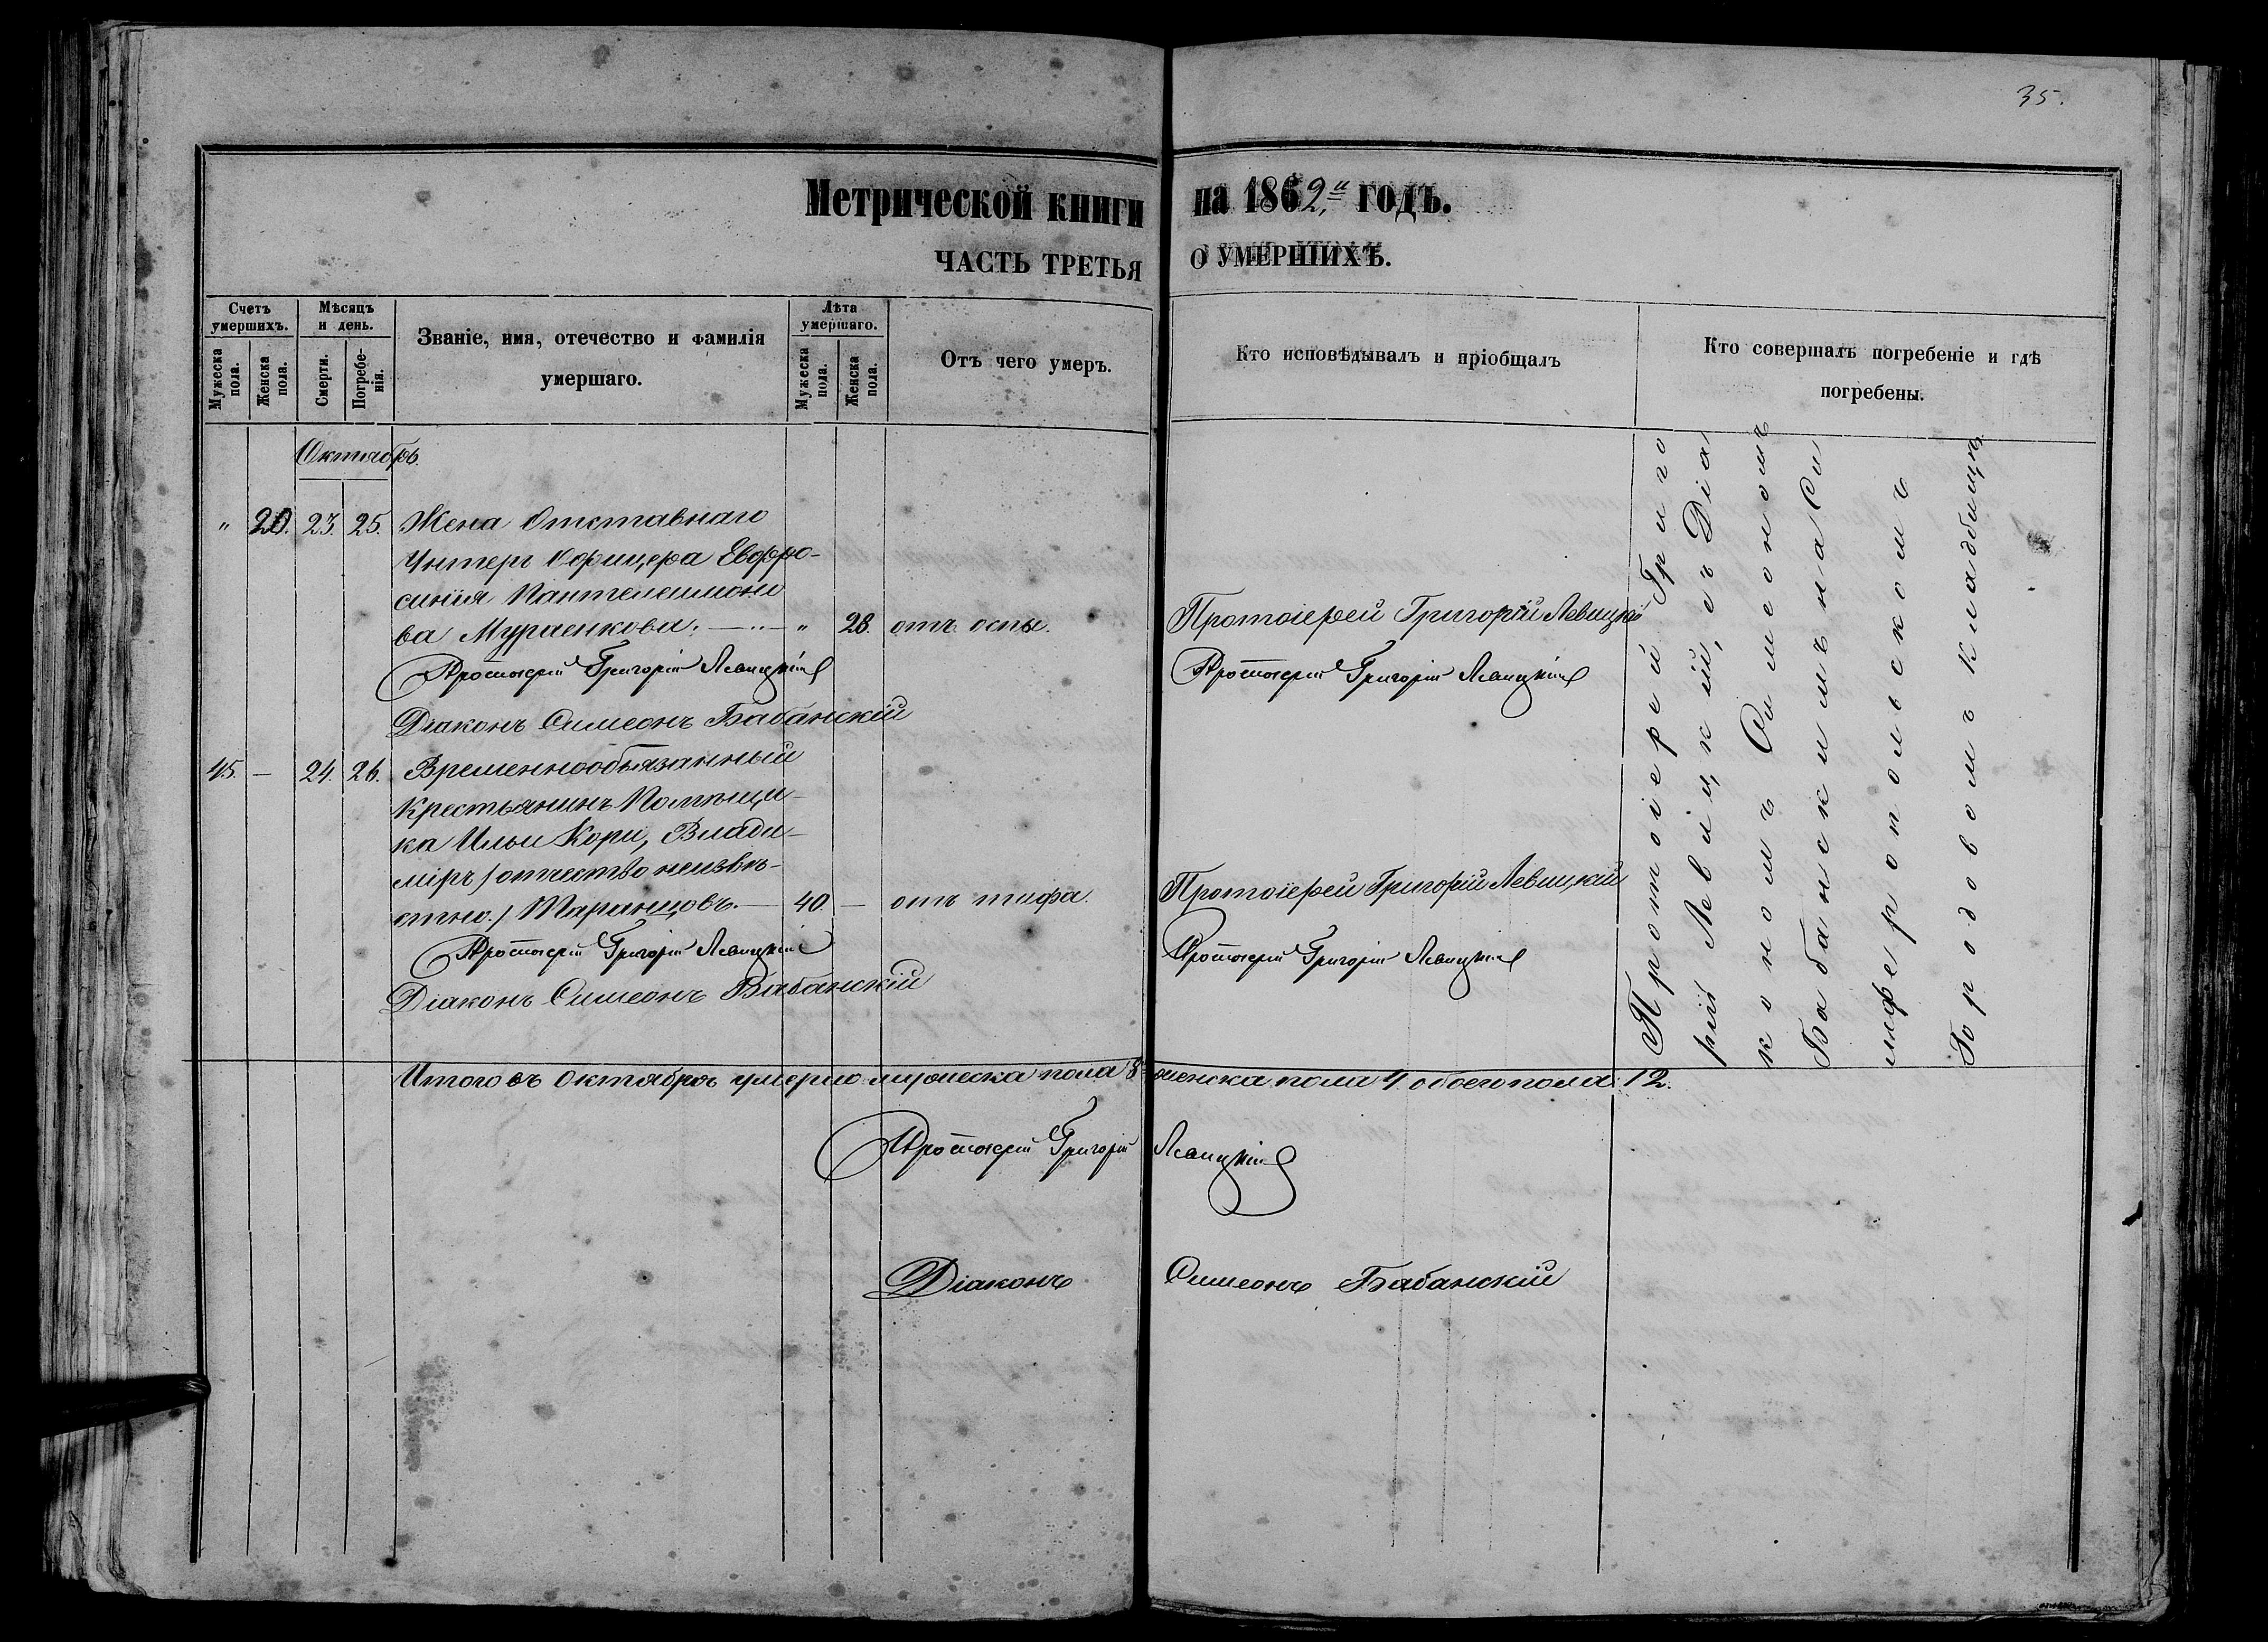 35.
Метрической книги на 1862,й годъ.
ЧАСТЬ ТРЕТЬЯ О УМЕРШИХЪ.
Счетъ умершихъ.
Мужеска пола.
Женска пола.
Мѣсяцъ и день.
Смерти.
Погребе-
нія.
Званіе, имя, отечество и фамилія
умершаго.
Лѣта умершаго.
Мужеска пола.
Женска пола.
Отъ чего умеръ.
Кто исповѣдывалъ и пріобщалъ
Кто совершалъ погребеніе и гдѣ
погребены.
Октябрь.
" 20. 23. 25. Жена Отставнаго
Унтеръ Офицера Евфро-
синія Пантелеимоно
ва Мураенкова. " 28. отъ оспы. Протоіерей Григорій Левицкій
Протоіерей Григорій Левицкій Протоіерей Григорій Левицкій
Діаконъ Симеонъ Бабанскій
45. — 24. 26. Временнообязанный
Крестьянинъ Помѣщи-
ка Ильи Кори, Влади-
міръ /отчество неизвѣ-
стно./ Таранцовъ. — 40. — отъ тифа. Протоіерей Григорій Левицкій
Протоіерей Григорій Левицкій Протоіерей Григорій Левицкій
Діаконъ Симеонъ Бабанскій
Протоіерей Григо
рій Левицкій, съ Діа
кономъ Симеономъ
Бабанскимъ на Си
мферопольскомъ
Городовомъ кладбищѣ
Итого въ Октябрѣ умерло мужеска пола 8 женска пола 4. обоего пола: 12.
Протоіерей Григорій Левицкій
Діаконъ Симеонъ Бабанскій